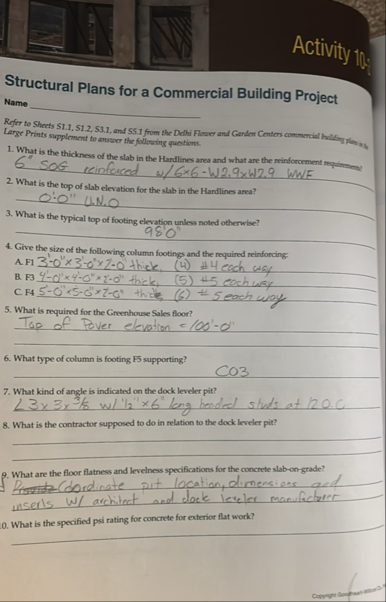 Activity 10-
Structural Plans for a Commercial Building Project
Name
Refer to Sheets S1.1, S1.2, S3.1, and S5.1 from the Delhi Flower and Garden Centers commercial building plans in the
Large Prints supplement to answer the following questions.
1. What is the thickness of the slab in the Hardlines area and what are the reinforcement requirements?
6" SOG reinforced w/ 6x6-W2.9xW2.9 WWF
2. What is the top of slab elevation for the slab in the Hardlines area?
0'-0" U.N.O
3. What is the typical top of footing elevation unless noted otherwise?
98'0"
4. Give the size of the following column footings and the required reinforcing:
A. F1 3'-0"x3'-0"x2'-0" thick, (4) #4 each way
B. F3 4'-0"x4'-0"x2'-0" thick, (5) #5 each way
C. F4 5'-0"x5'-0"x2'-0" thick (6) #5 each way
5. What is required for the Greenhouse Sales floor?
Top of Paver elevation = 100'-0"
6. What type of column is footing F5 supporting?
CO3
7. What kind of angle is indicated on the dock leveler pit?
L3x3x3/8 w/ 1/2"x6" long headed studs at 12 O.C
8. What is the contractor supposed to do in relation to the dock leveler pit?
9. What are the floor flatness and levelness specifications for the concrete slab-on-grade?
Coordinate pit location, dimensions and
inserts w/ architect and dock leveler manufacturer
0. What is the specified psi rating for concrete for exterior flat work?